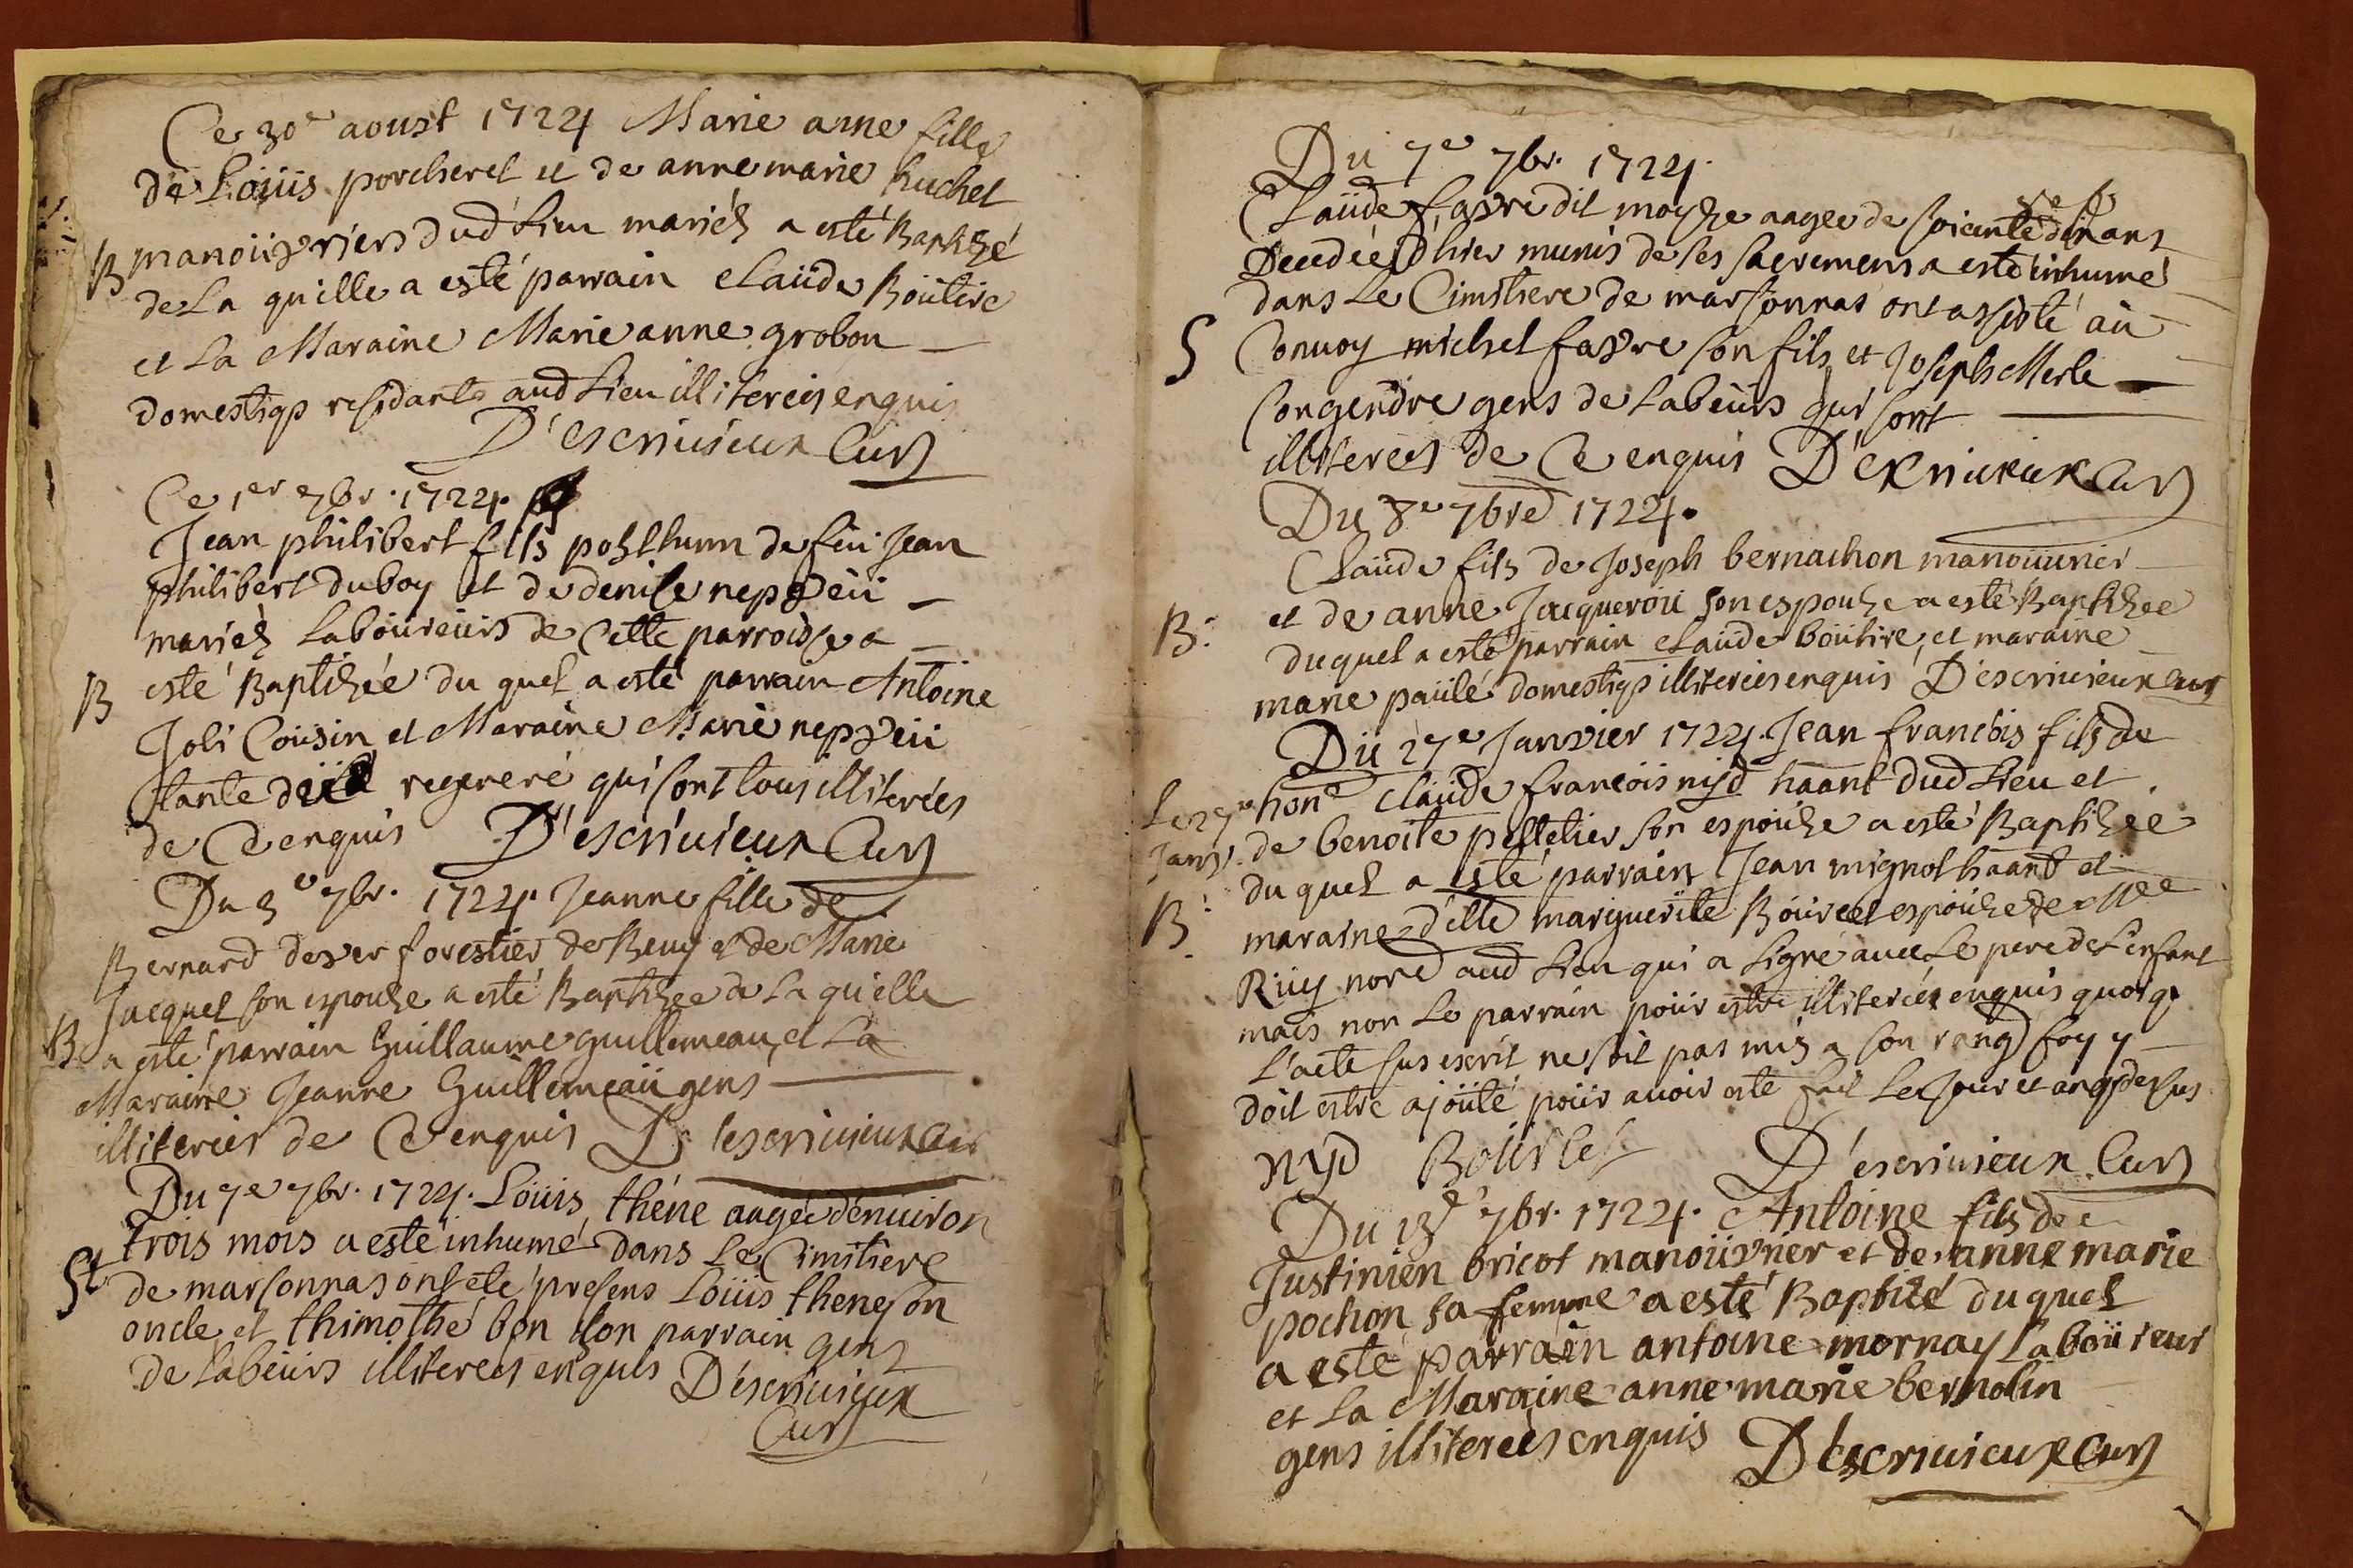 Ce 30e aoust 1724 Marie anne fille
de Loüis porcheret et de anne marie huchet
B manoüvriers dud lieu mariéz a esté Baptizé
de La quelle a esté parrain claüde Boutire
et La Maraine Marie anne grobon
domestiqs residants aud Lieu illiterées enquis
D'escriuieux Curé
Ce 1er 7br. 1724.
Jean philibert fils posthum de feu Jean
philibert duboy et de denise nepveü
mariéz Laboüreurs de Cette parroisse a
B esté Baptizée du quel a esté parrain Antoine
Joli Coüsin et Maraine Marie nepveü
tante regeneré qui sont tous illiterées
de Ce enquis D'escriuieux Curé
Du 3e 7br. 1724 Jeanne fille de
Bernard dever forestier de Beuy et de Marie
Jacquet son espouze a esté Baptizée de La quelle
B a esté parrain Guillaume guillemeau, et La
Maraine Jeanne Guillemeaü gens
illiterées de Ce enquis D'escriuieux Curé
Du 7e 7br. 1724. Loüis théne aagée d'enuiron
trois mois a esté inhumé dans Le Cimitiere
St de marsonnas ont eté presens Loüis thene son
oncle et thimothé bon son parrain gens
de Labeurs illiterées enquis D'escriuieux
Curé
Du 7e 7br. 1724.
Claüde favre dit moyze aagée de soicente dix ans
Decedée d'hier munis de ses sacremens a esté inhumé
dans Le Cimitiere de marsonnas ont assisté au
S Conuoy michel favre son fils et Joseph Merle
son gendre gens de Labeurs qui sont
illiterées de Ce enquis D'escriuieux Curé
Du 8e 7bre 1724.
Claüde fils de Joseph bernachon manoüurier
B: et de anne Jacqueroü son espouze a esté Baptizée
du quel a esté parrain claüde boütire, et maraine
marie paülé domestiqs illiterées enquis D'escriuieux Curé
Dü 27e Janvier 1724. Jean francois fils de
Le 27e hone Claüde francois nyd haant dud Lieu et
Janv. de benoite pelletier son espouze a esté Baptizée
du quel a esté parrain Jean mignot haant et
B: maraine d'elle marguerite Boürcet espouze de Mre
Ruy nore aud Lieu qui a signé auec Le pere de L'enfant
mais non Le parrain poür estre illiterée enquis quoiq
L'acte sus escrit ne soit pas mis a son rang foy y
doit estre ajoüté poür auoir esté fait Les Jour et an q dessus
nyd Bourcet D'escriuieux Curé
Du 13e 7br. 1724. Antoine fils de
Justinien bricot manoüvrier et de anne marie
pochon sa femme a esté Baptizé du quel
a esté parrain antoine mornay Laboüreur
et La Maraine anne marie bernolin
gens illiterées enquis D'escriuieux Curé